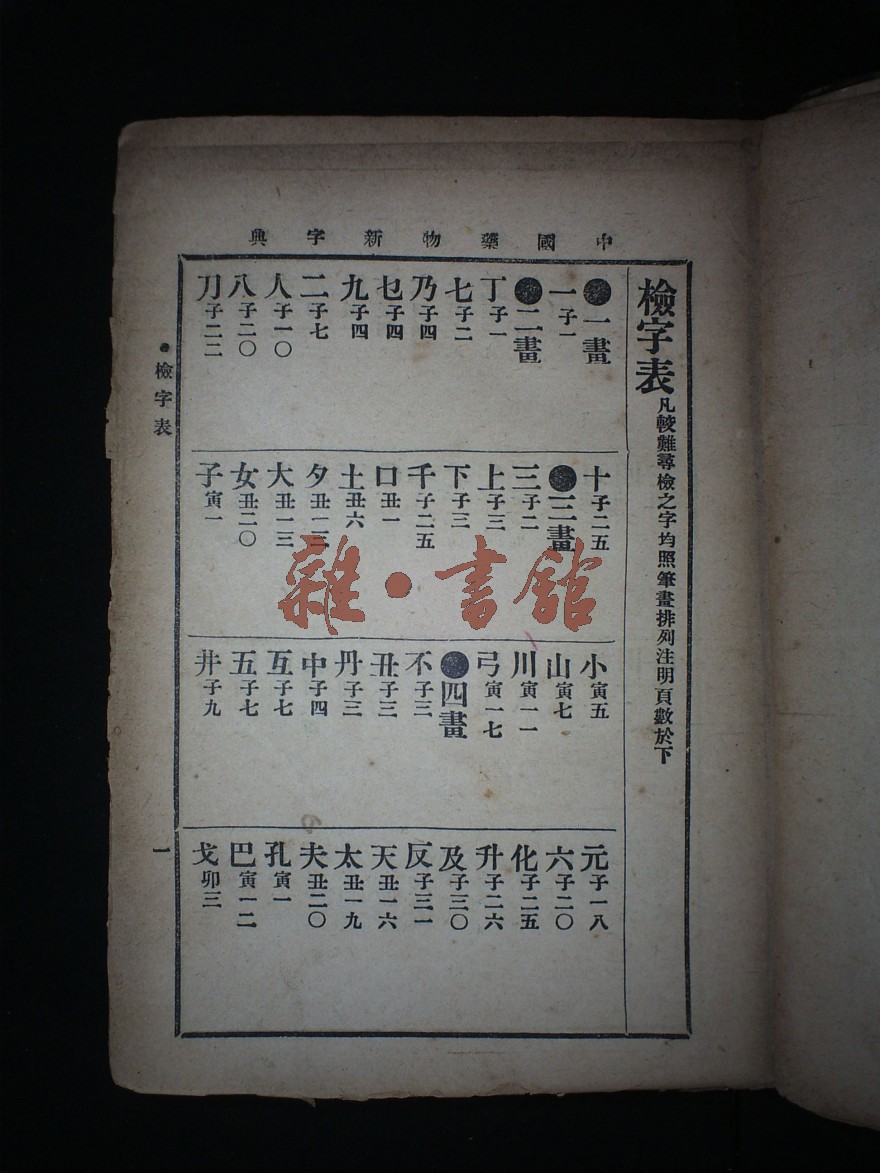 中國藥物新字典
檢字表 凡較難尋檢之字均照筆畫排列注明頁數於下
●一畫
一 子一
●二畫
丁 子一
七 子二
乃 子四
乜 子四
九 子四
二 子七
人 子一〇
八 子二〇
刀 子二二
十 子二五
●三畫
三 子二
上 子三
下 子三
千 子二五
口 丑一
土 丑六
夕 丑一三
大 丑一三
女 丑二〇
子 寅一
小 寅五
山 寅七
川 寅一一
弓 寅一七
●四畫
不 子三
丑 子三
丹 子三
中 子四
互 子七
五 子七
井 子九
元 子一八
六 子二〇
化 子二五
升 子二六
及 子三〇
反 子三一
天 丑一六
太 丑一九
夫 丑二〇
孔 寅一
巴 寅一二
戈 卯三
●檢字表
一
雜·書館